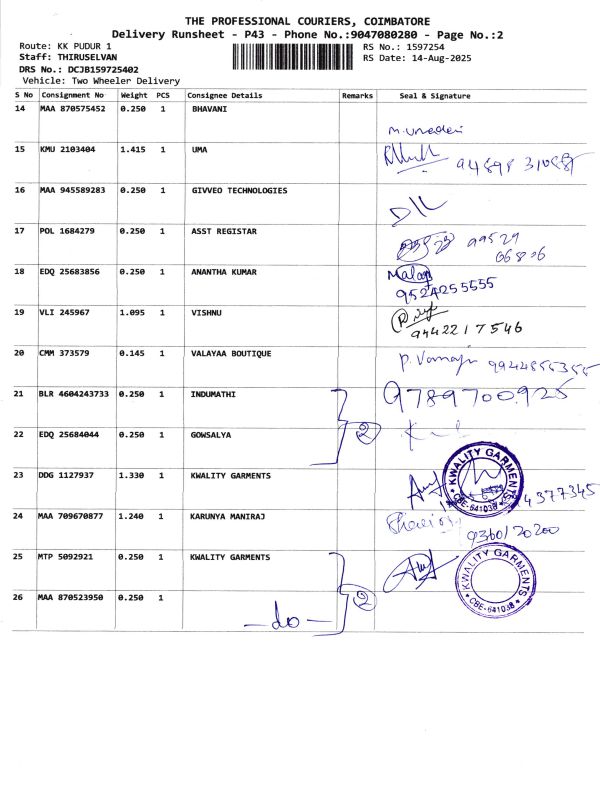 THE PROFESSIONAL COURIERS, COIMBATORE
Delivery Runsheet - P43 - Phone No.:9047080280 - Page No.:2
Route: KK PUDUR 1 RS No.: 1597254
Staff: THIRUSELVAN RS Date: 14-Aug-2025
DRS No.: DCJB159725402
Vehicle: Two Wheeler Delivery
S No Consignment No Weight PCS Consignee Details Remarks Seal & Signature
14 MAA 870575452 0.250 1 BHAVANI
15 KMU 2103404 1.415 1 UMA
16 MAA 945589283 0.250 1 GIVVEO TECHNOLOGIES
17 POL 1684279 0.250 1 ASST REGISTAR 99529
18 EDQ 25683856 0.250 1 ANANTHA KUMAR
9524255555
19 VLI 245967 1.095 1 VISHNU
9442217546
20 CMM 373579 0.145 1 VALAYAA BOUTIQUE
21 BLR 4604243733 0.250 1 INDUMATHI 9789700925
22 EDQ 25684044 0.250 1 GOWSALYA 2
23 DDG 1127937 1.330 1 KWALITY GARMENTS KWALITY GARMENTS
CBE-641038
24 MAA 709670877 1.240 1 KARUNYA MANIRAJ
9360120200
25 MTP 5092921 0.250 1 KWALITY GARMENTS KWALITY GARMENTS
CBE-641038
26 MAA 870523950 0.250 1 2
-do-